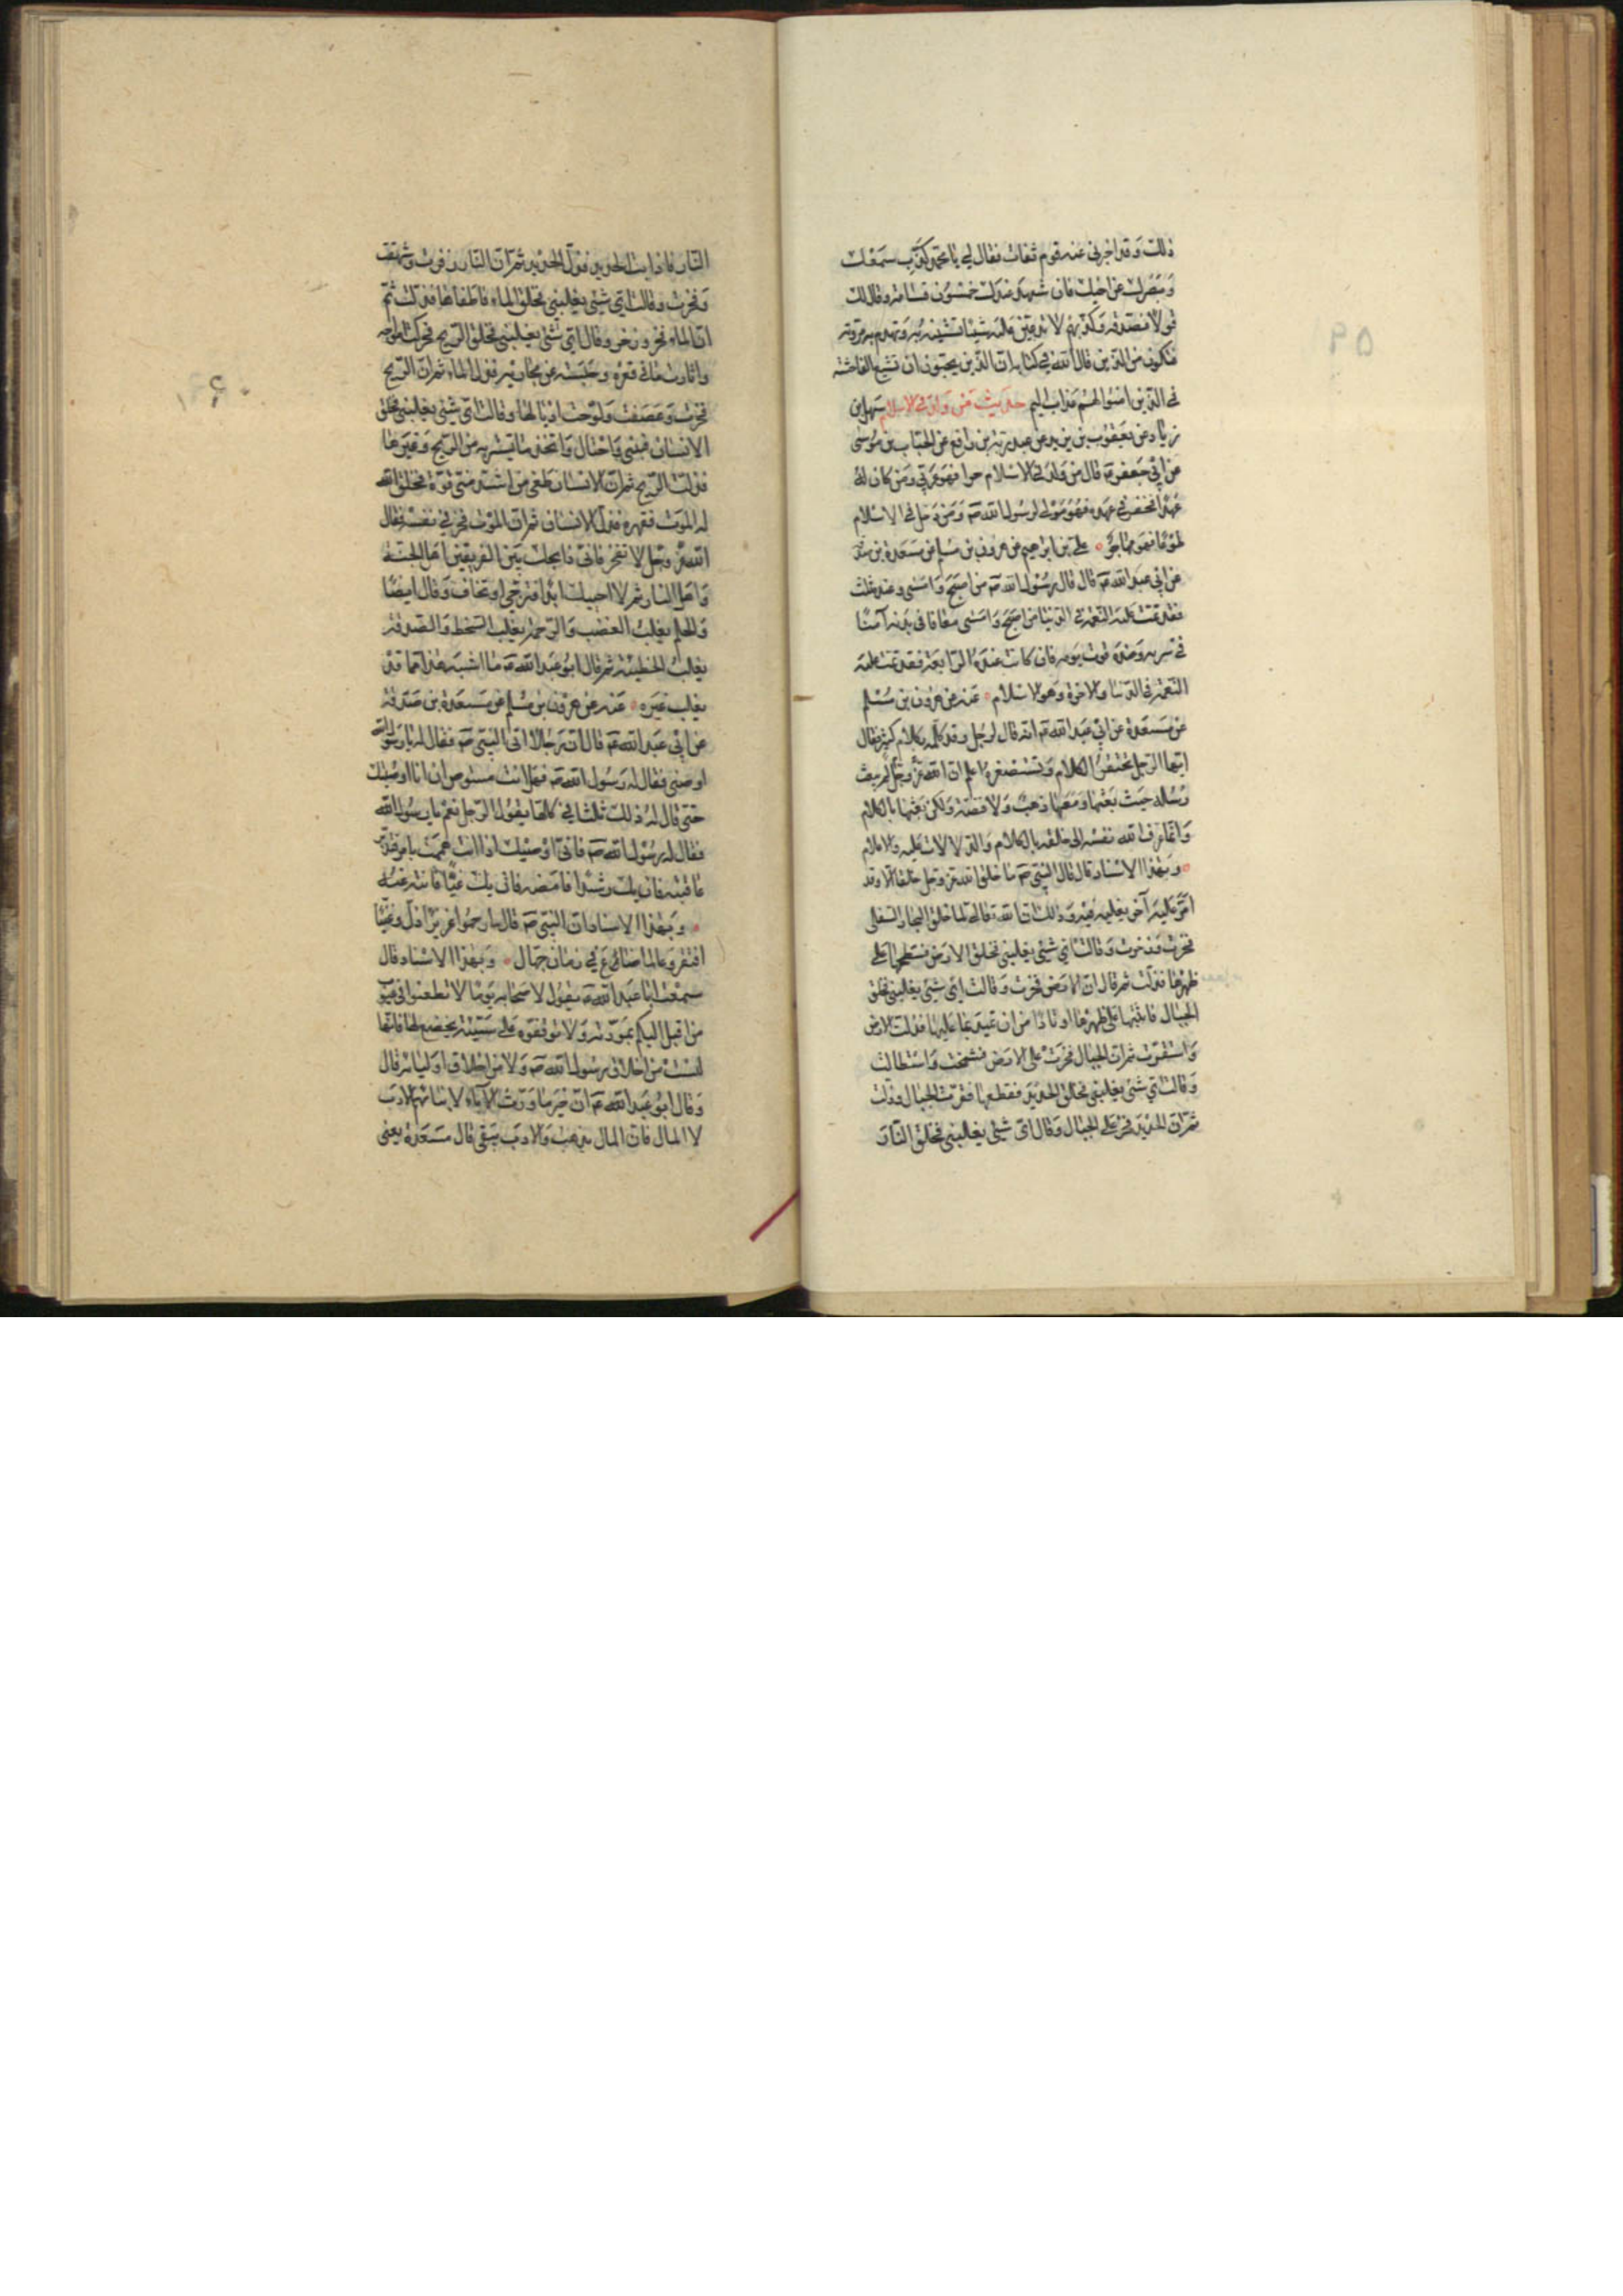 ذلك وقد اخبرنى عنه قوم ثقات فقال لي يا محمد كذب سمعك
وبصرك عن اخيك فان شهد عندك خمسون قسامة وقال لك
قولا فصدقه وكذبهم لا تذيعن عليه شيئا تشينه به وتهدم به مروته
فتكون من الذين قال الله في كتابه ان الذين يحبون ان تشيع الفاحشة
في الذين امنوا لهم عذاب اليم حديث من ولد في الاسلام سهل بن
زياد عن يعقوب بن يزيد عن عبد ربه بن رافع عن الحباب بن موسى
عن ابي جعفر ع قال من ولد في الاسلام حرا فهو عربي ومن كان له
عهد فخفر في عهده فهو مولى لرسول الله ص ومن دخل في الاسلام
طوعا فهو مهاجر ه علي بن ابراهيم عن هرون بن مسلم عن مسعدة بن صدقة
عن ابي عبد الله ع قال قال رسول الله ص من اصبح وامسى وعنده ثلث
فقد تمت عليه النعمة في الدنيا من اصبح وامسى معافا في بدنه آمنا
في سربه وعنده قوت يومه فان كانت عنده الرابعة فقد تمت عليه
النعمة في الدنيا والاخرة وهو الاسلام ه عنه عن هرون بن مسلم
عن مسعدة عن ابي عبد الله ع انه قال لرجل وقد كلمه بكلام كثير فقال
ايها الرجل تحتقر الكلام وتستصغره اعلم ان الله عز وجل لم يبعث
رسله حيث بعثها ومعها ذهب ولا فضة ولكن بعثها بالكلام
وانما عرف الله نفسه الى خلقه بالكلام والدلالات عليه والاعلام
ه وبهذا الاسناد قال قال النبي ص ما خلق الله عز وجل خلقا الا وقد
امر عليه آخر يغلبه فيه وذلك ان الله تعالى لما خلق البحار السفلى
فخرت وزخرت وقالت اي شئ يغلبني فخلق الارض فسطحها على
ظهرها فذلت ثم قال ان الارض فخرت وقالت اي شئ يغلبني فخلق
الجبال فاثبتها على ظهرها اوتادا من ان تميد بما عليها فذلت الارض
واستقرت ثم ان الجبال فخرت على الارض فشمخت واستطالت
وقالت اي شئ يغلبني فخلق الحديد فقطعها فقرت الجبال وذلت
ثم ان الحديد فخر على الجبال وقال اي شئ يغلبني فخلق النار
٥٩
النار فاذابت الحديد فذل الحديد ثم ان النار زفرت وشهقت
وفخرت وقالت اي شئ يغلبني فخلق الماء فاطفاها فذلت ثم
ان الماء فخر وزخر وقال اي شئ يغلبني فخلق الريح فحركت امواجه
واثارت ما في قعره وحبسته عن مجاريه فذل الماء ثم ان الريح
فخرت وعصفت ولوحت اذيالها وقالت اي شئ يغلبني فخلق
الانسان فبنى واحتال واتخذ ما يستتر به من الريح وغيرها
فذلت الريح ثم ان الانسان طغى من اشد مني قوة فخلق الله
له الموت فقهره فذل الانسان ثم ان الموت فخر في نفسه فقال
الله عز وجل لا تفخر فاني ذابحك بين الفريقين اهل الجنة
واهل النار ثم لا احييك ابدا فترجى او تخاف وقال ايضا
والحلم يغلب الغضب والرحمة يغلب السخط والصدقة
يغلب الخطيئة ثم قال ابو عبد الله ع ما اشبه هذا مما قد
يغلب غيره ه عنه عن هرون بن مسلم عن مسعدة بن صدقة
عن ابي عبد الله ع قال ان رجلا اتى النبي ص فقال له يا رسول الله
اوصني فقال له رسول الله ص فهل انت مستوص ان انا اوصيتك
حتى قال له ذلك ثلثا في كلها يقول الرجل نعم يا رسول الله
فقال له رسول الله ص فاني اوصيك اذا انت هممت بامر فتدبر
عاقبته فان يك رشدا فامضه فان يك غيا فانته عنه
ه وبهذا الاسناد ان النبي ص قال ارحموا عزيزا ذل وغنيا
افتقر وعالما ضائع في زمان جهال ه وبهذا الاسناد قال
سمعت ابا عبد الله ع يقول لاصحابه يوما لا تطعنوا في عيوب
من اقبل اليكم بمودته ولا توقفوه على سيئة يخضع لها فانها
ليست من اخلاق رسول الله ص ولا من اخلاق اوليائه قال
وقال ابو عبد الله ع ان خير ما ورث الآباء لابنائهم الادب
لا المال فان المال يذهب والادب يبقى قال مسعدة يعنى